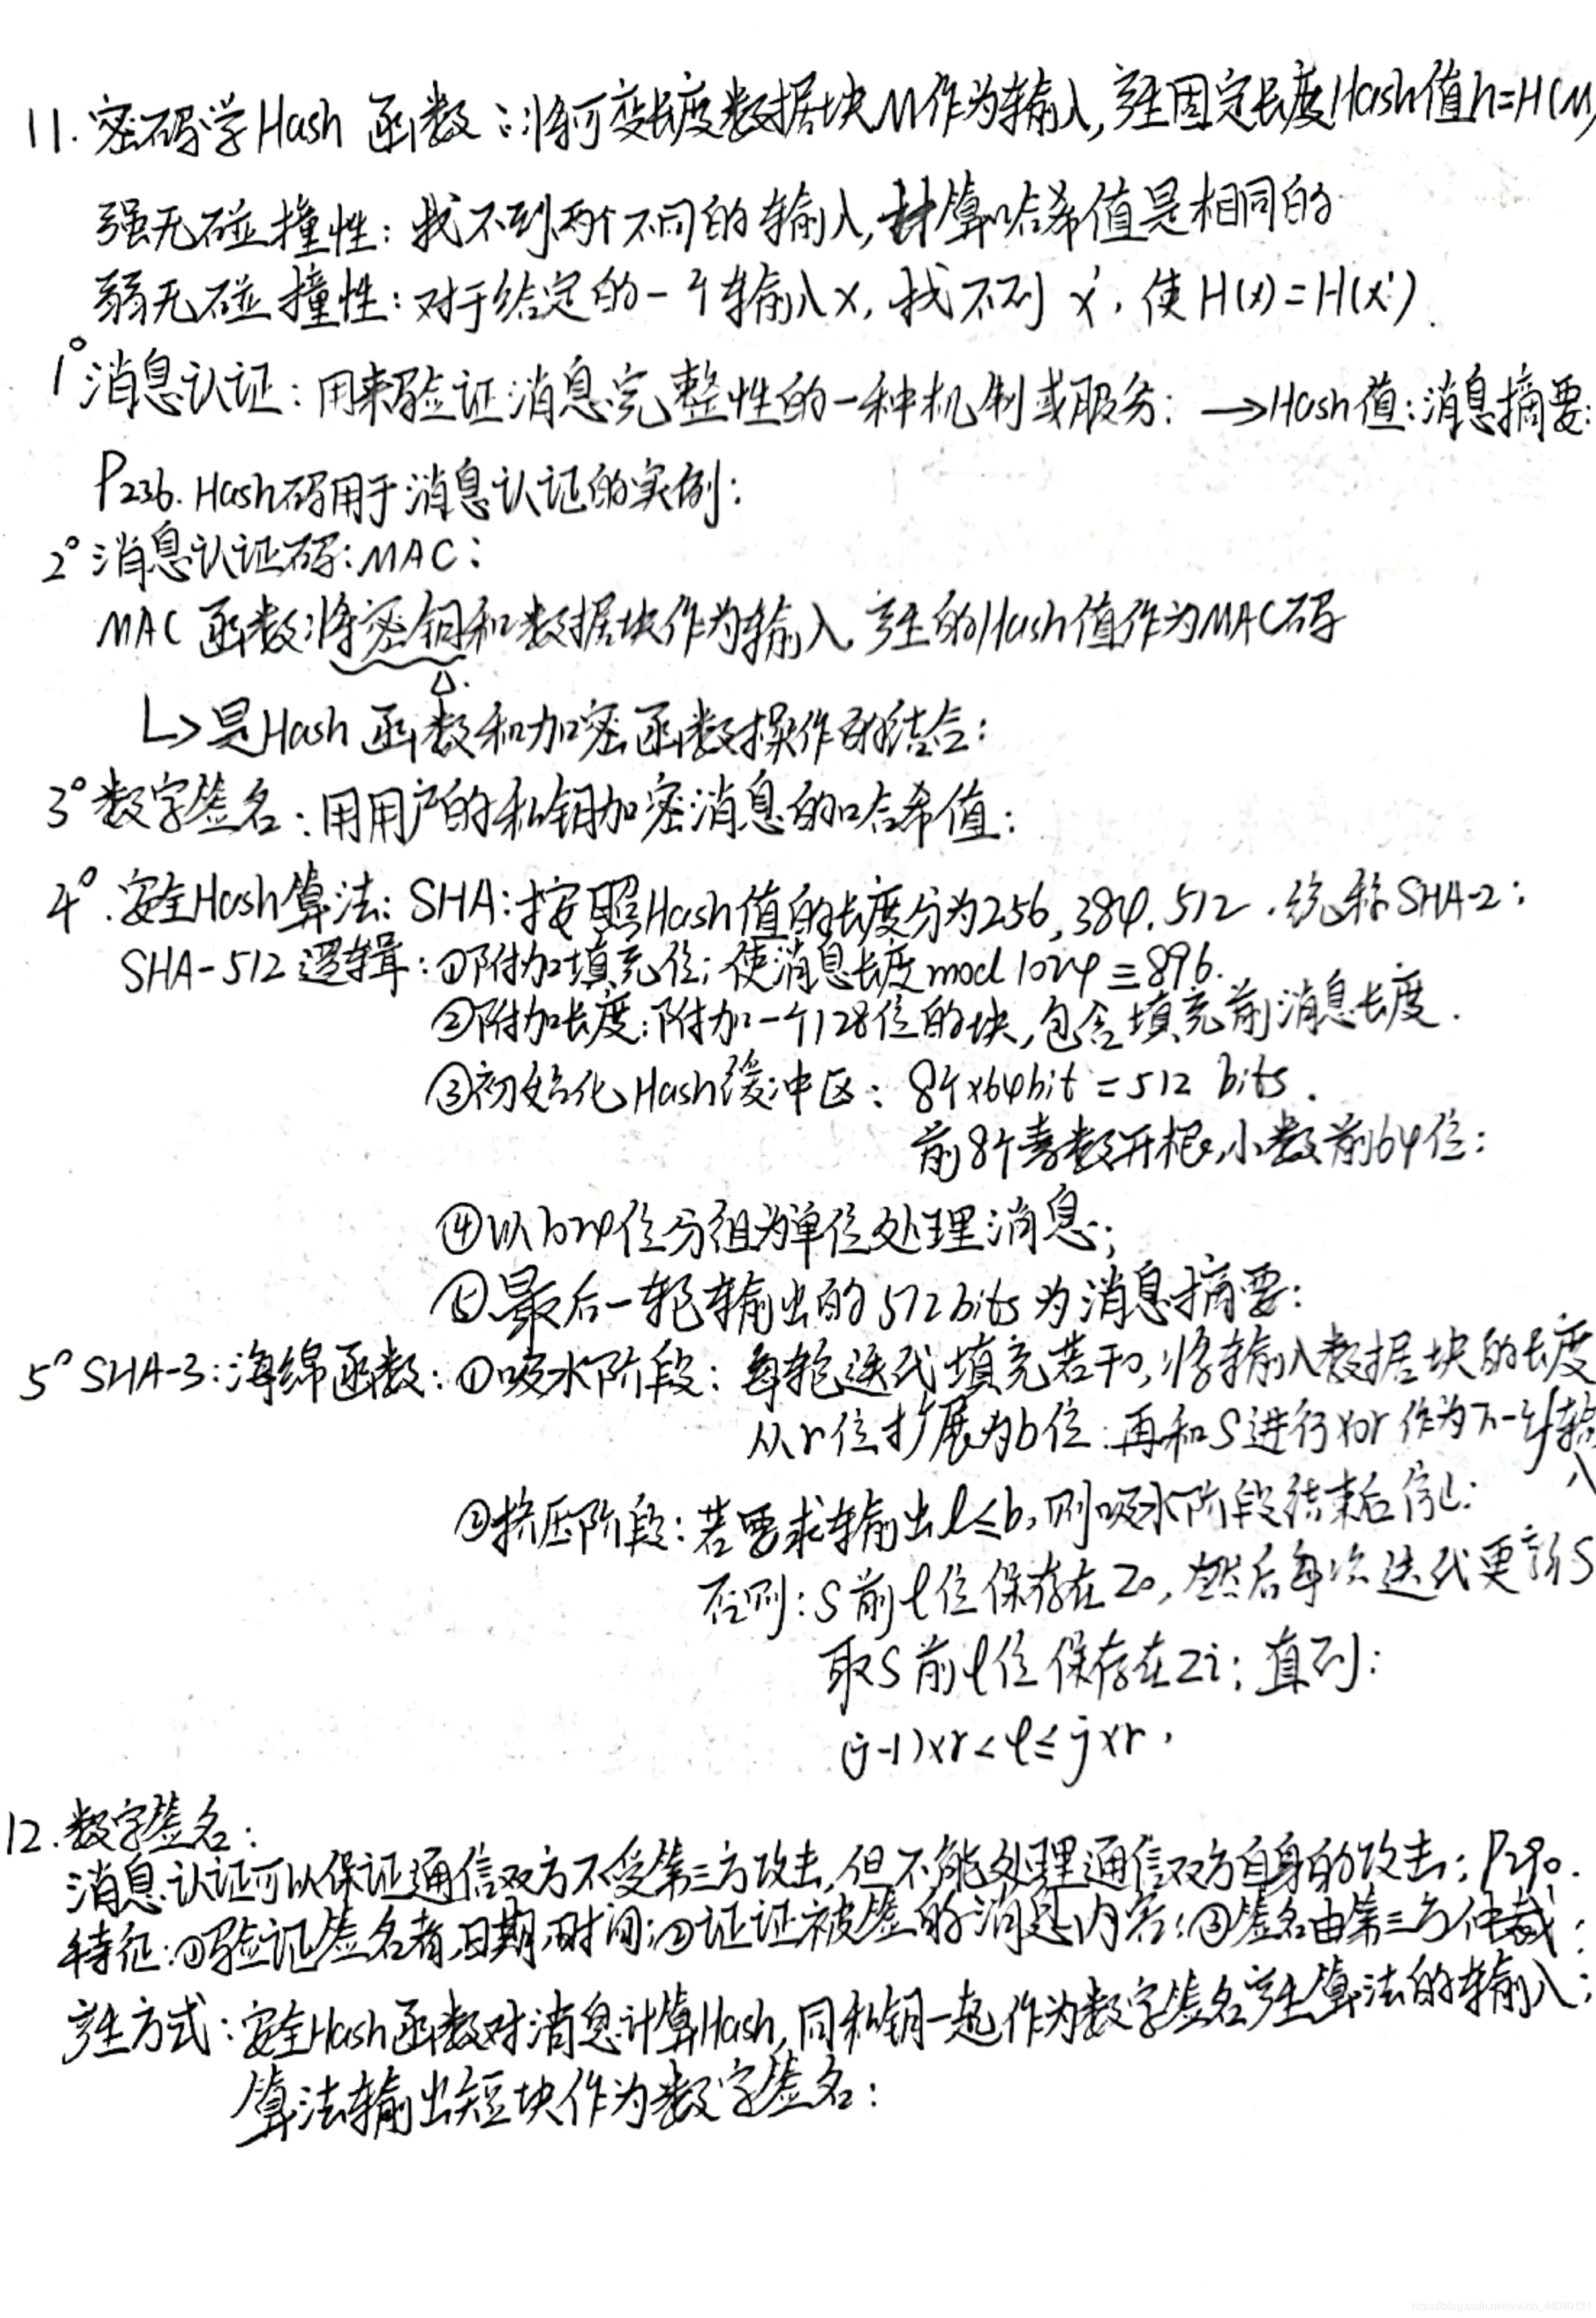 11. 密码学Hash 函数:将可变长度数据块M作为输入,产生固定长度Hash值h=H(M)
强无碰撞性:找不到两个不同的输入,计算哈希值是相同的
弱无碰撞性:对于给定的一个输入x,找不到x',使H(x)=H(x').
1°消息认证:用来验证消息完整性的一种机制或服务: →Hash值:消息摘要:
P236. Hash码用于消息认证的实例:
2°消息认证码:MAC:
MAC函数:将密钥和数据块作为输入,产生的Hash值作为MAC码
↳是Hash函数和加密函数操作的结合:
3°数字签名:用用户的私钥加密消息的哈希值:
4°.安全Hash算法:SHA:按照Hash值的长度分为256,384,512.统称SHA-2:
SHA-512逻辑:①附加填充位;使消息长度mod 1024≡896.
②附加长度:附加一个128位的块,包含填充前消息长度.
③初始化Hash缓冲区:8个×64bit=512 bits.
前8个素数开根,小数前64位:
④以1024位分组为单位处理消息;
⑤最后一轮输出的512bits为消息摘要:
5°SHA-3:海绵函数:①吸水阶段:每轮迭代填充若干0,将输入数据块的长度
从r位扩展为b位:再和S进行xor作为下一个输入
②挤压阶段:若要求输出ℓ≤b,则吸水阶段结束后停止:
否则:S前ℓ位保存在Z0,然后每次迭代更新S
取S前ℓ位保存在Zi;直到:
(j-1)×r<ℓ≤j×r.
12.数字签名:
消息认证可以保证通信双方不受第三方攻击,但不能处理通信双方自身的攻击;P290.
特征:①验证签名者,日期,时间;②证证被签的消息内容;③签名由第三方仲裁:
产生方式:安全Hash函数对消息计算Hash,同私钥一起作为数字签名产生算法的输入;
算法输出短块作为数字签名:
https://blog.csdn.net/weixin_44080131